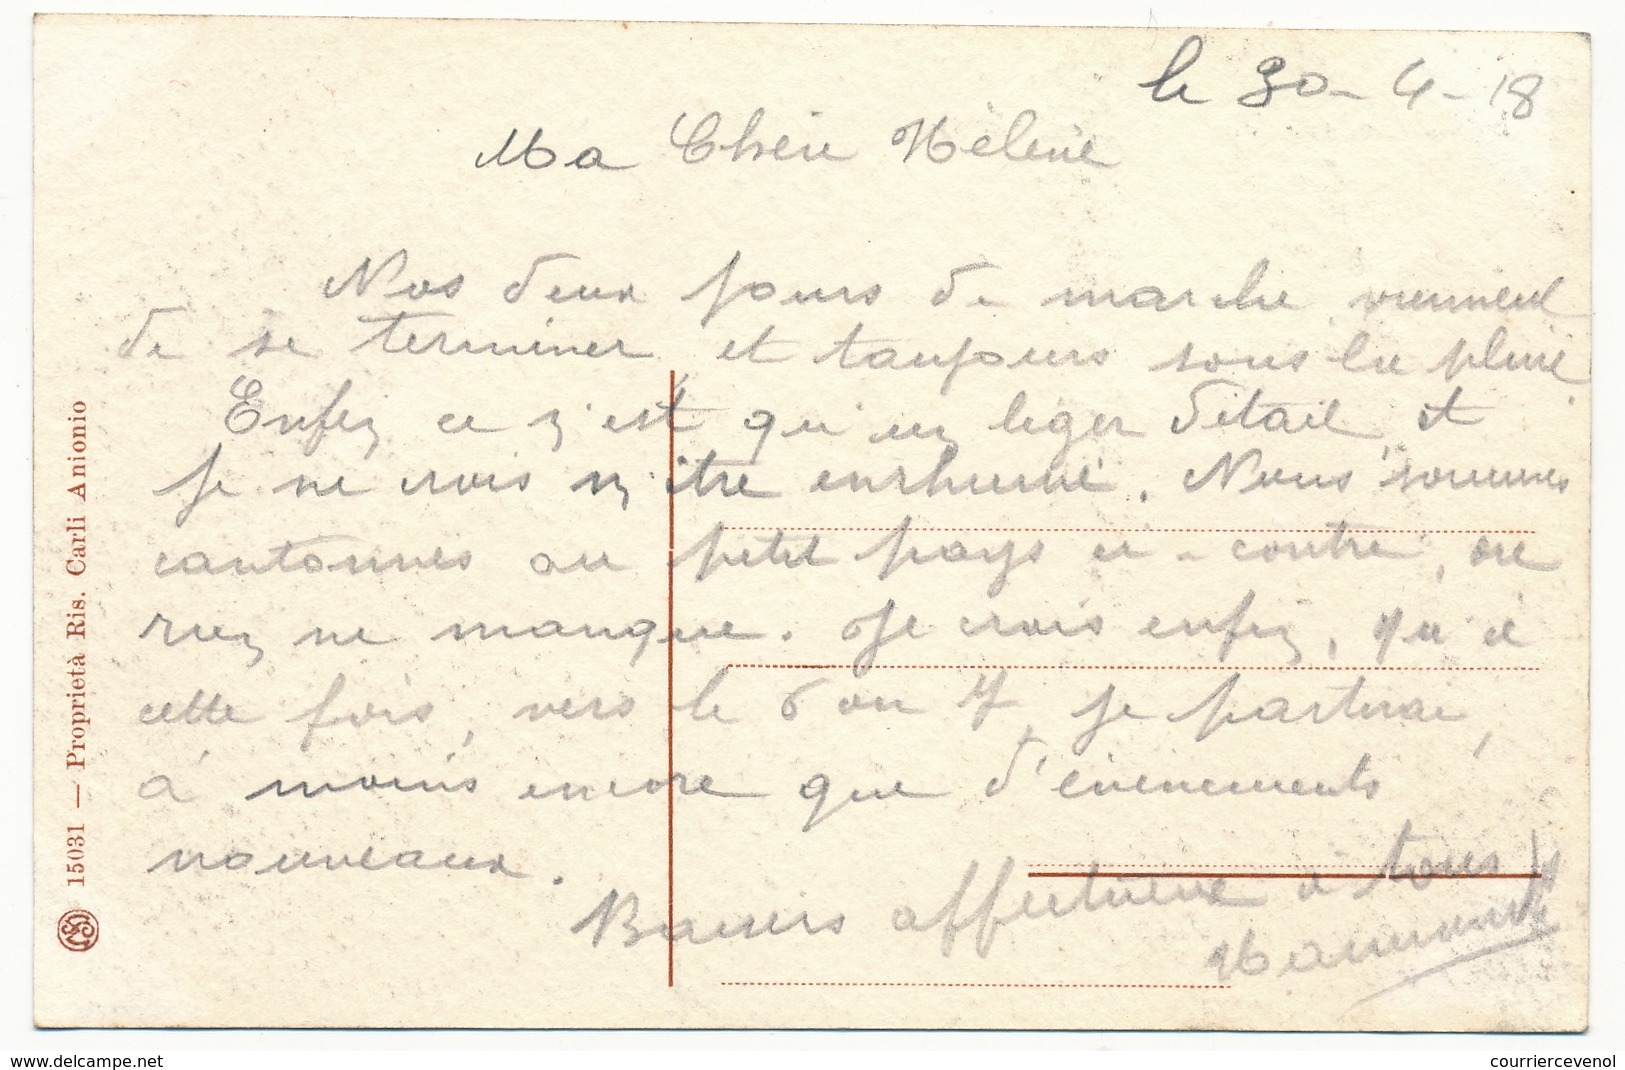 le 30-4-18
Ma Chère Hélène
Nos deux jours de marche viennent
de se terminer, et toujours sous la pluie
Enfin ce n'est qu'un léger détail, et
je ne crois m'être enrhumé. Nous sommes
cantonnés au petit pays ci-contre, où
rien ne manque. Je crois enfin, qu'à
cette fois, vers le 6 ou 7, je partirai,
à moins encore que d'évènements
nouveaux.
Baisers affectueux à tous
15031 — Proprietà Ris. Carli Anionio
courriercevenol